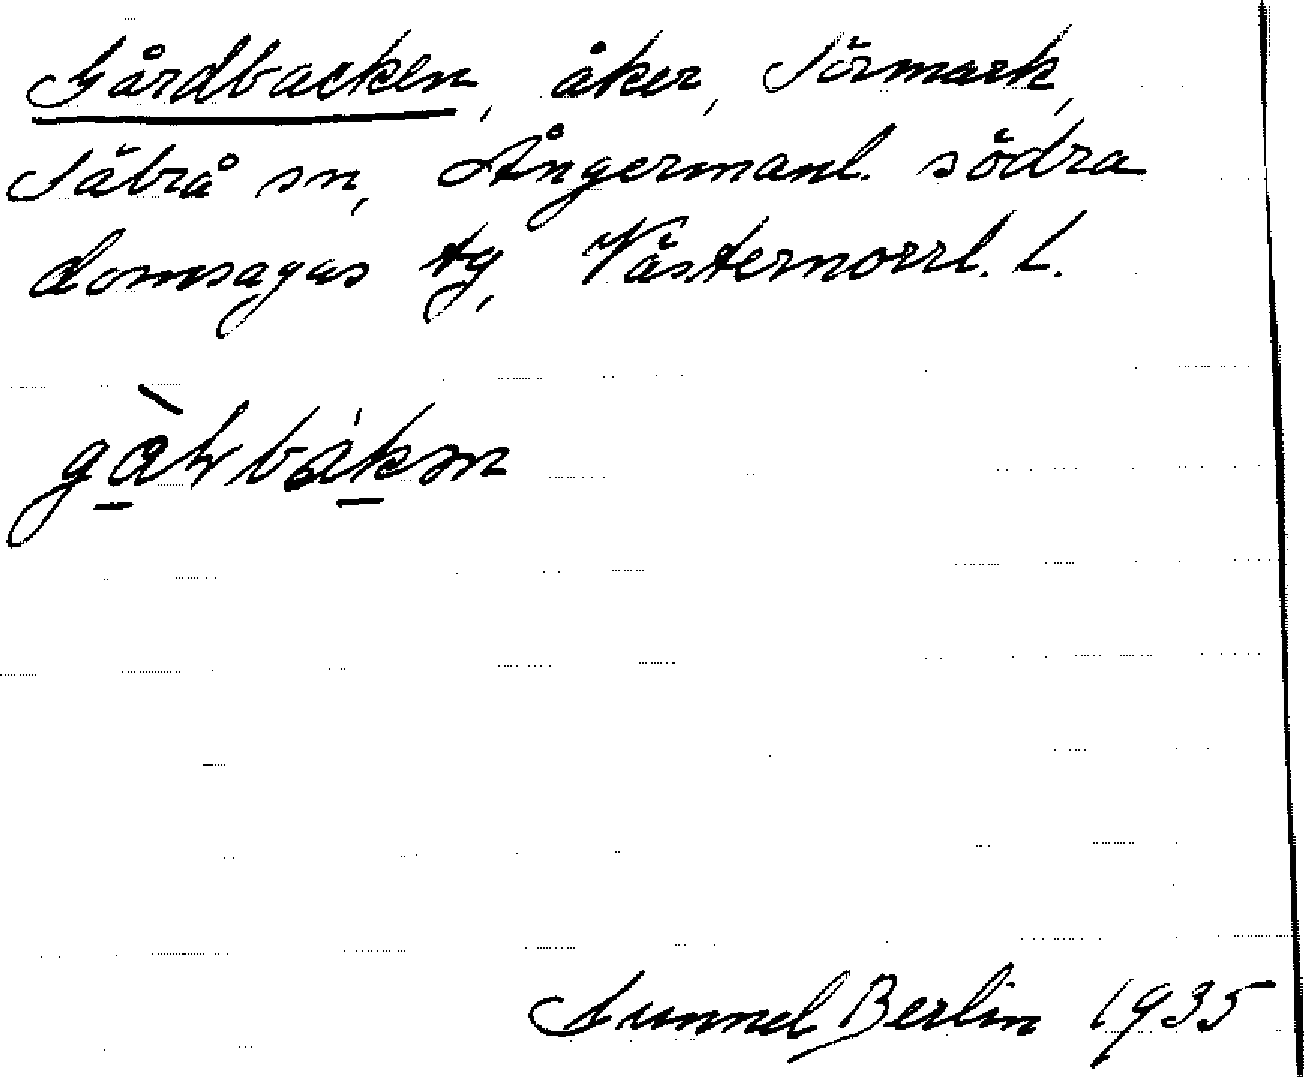 Gårdbacken, åker, Sörmark,
Säbrå sn, Ångermanl. södra
domsagas tg, Västernorrl. l.
Gunnel Berlin 1935